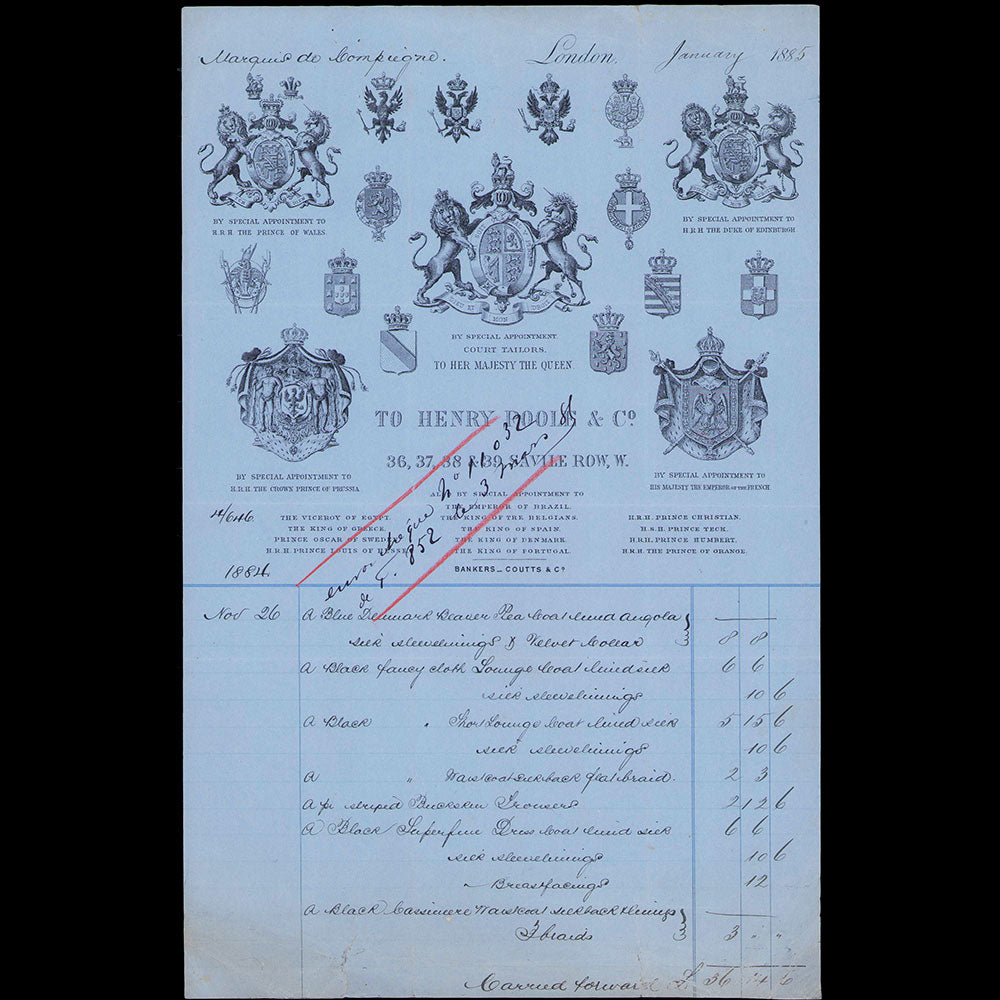 Marquis de Compiegne.
London. January 1885
BY SPECIAL APPOINTMENT TO
H.R.H. THE PRINCE OF WALES
BY SPECIAL APPOINTMENT TO
H.R.H THE DUKE OF EDINBURGH
DIEU ET MON DROIT
BY SPECIAL APPOINTMENT.
COURT TAILORS.
TO HER MAJESTY THE QUEEN.
TO HENRY POOLE & Co.
36, 37, 38 & 39, SAVILE ROW, W.
BY SPECIAL APPOINTMENT TO
H.R.H. THE CROWN PRINCE OF PRUSSIA
BY SPECIAL APPOINTMENT TO
HIS MAJESTY THE EMPEROR OF THE FRENCH.
ALSO BY SPECIAL APPOINTMENT TO
4/646.
THE VICEROY OF EGYPT.
THE KING OF GREECE.
PRINCE OSCAR OF SWEDEN
H.R.H. PRINCE LOUIS OF HESSE
THE EMPEROR OF BRAZIL.
THE KING OF THE BELGIANS.
THE KING OF SPAIN.
THE KING OF DENMARK.
THE KING OF PORTUGAL.
H.R.H. PRINCE CHRISTIAN.
H.S.H. PRINCE TECK.
H.R.H. PRINCE HUMBERT.
H.R.H. THE PRINCE OF ORANGE.
BANKERS_COUTTS & Co
chèque No
de 852 le 3 mars
1884.
Nov 26 A Blue Denmark Beaver Pea Coat lined Angola
silk sleevelinings & Velvet Collar 8 8
A Black fancy cloth Lounge Coat lined silk 6 6
silk sleevelinings 10 6
A Black " Short Lounge Coat lined silk 5 15 6
silk sleevelinings 10 6
A " Waistcoat silk back flat braid. 2 3
A pr striped Buckskin Trousers 2 12 6
A Black Superfine Dress Coat lined silk 6 6
silk sleevelinings 10 6
" Breastfacings 12
A Black Cassimere Waistcoat silk back
3 braids 3 " "
Carried forward £ 36 14 6